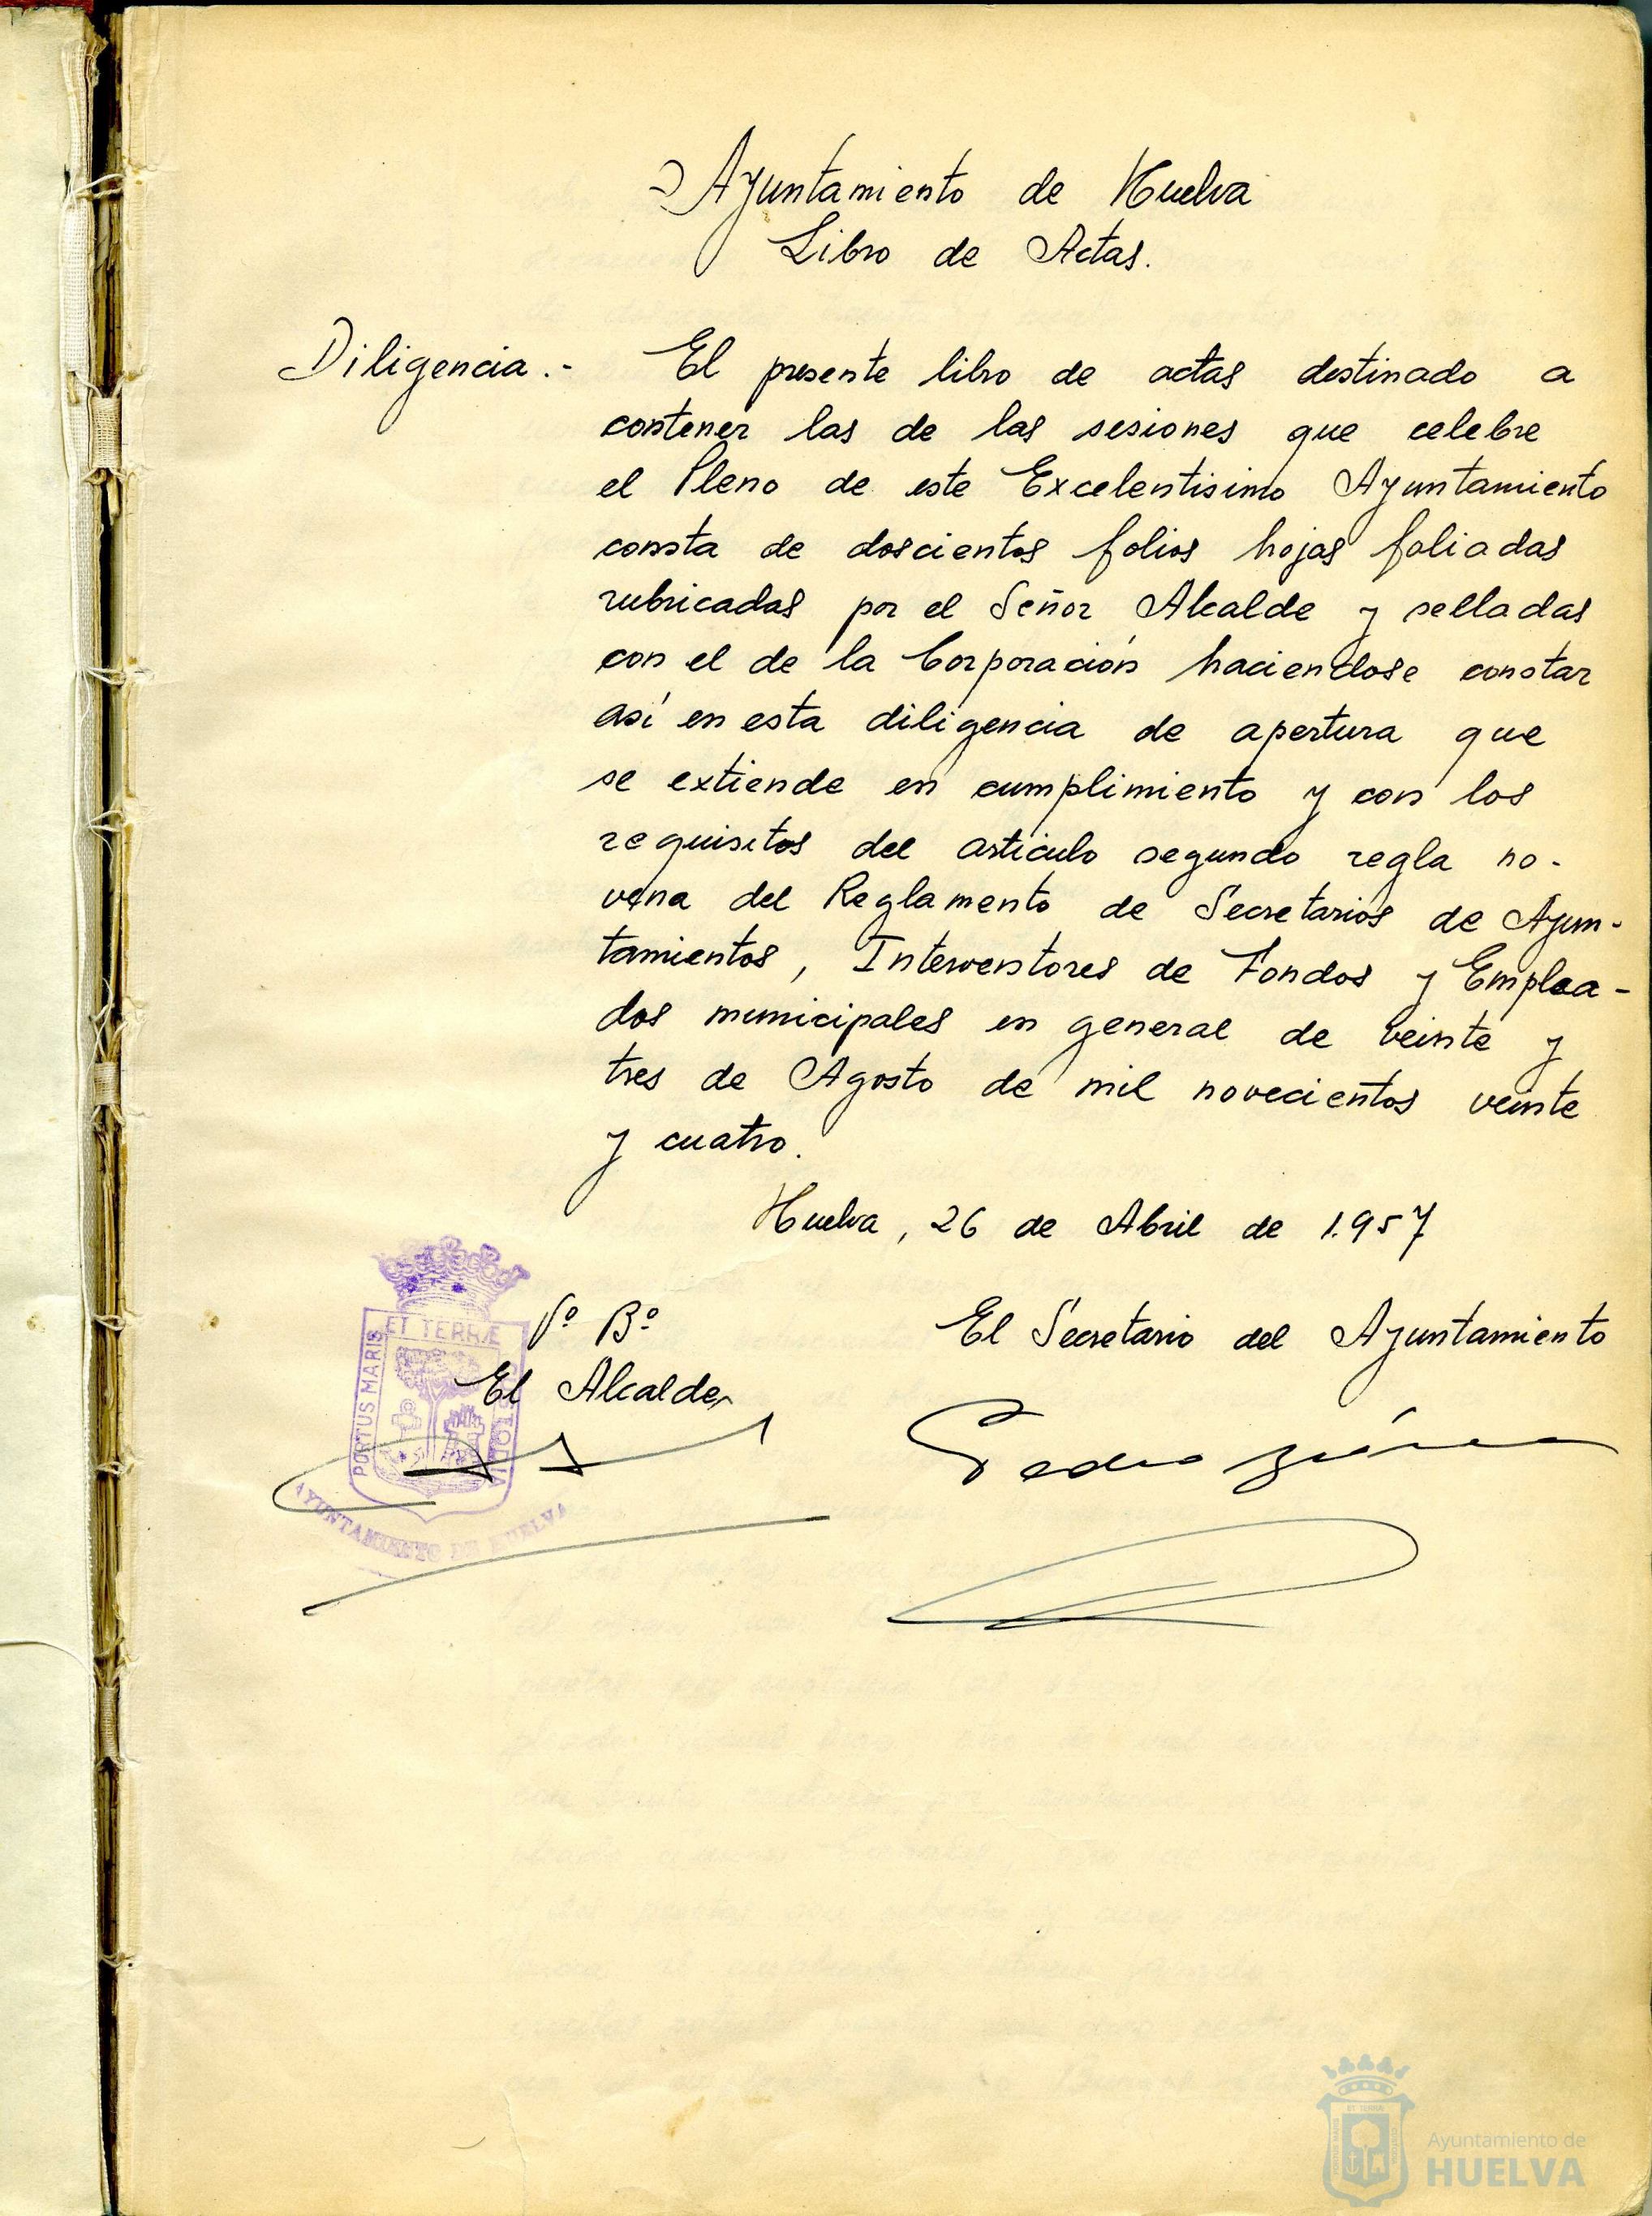 Ayuntamiento de Huelva
Libro de Actas.
Diligencia.- El presente libro de actas destinado a
contener las de las sesiones que celebre
el Pleno de este Excelentisimo Ayuntamiento
consta de doscientos folios hojas foliadas
rubricadas por el Señor Alcalde y selladas
con el de la Corporación haciendose constar
así en esta diligencia de apertura que
se extiende en cumplimiento y con los
requisitos del articulo segundo regla no-
vena del Reglamento de Secretarios de Ayun-
tamientos, Interventores de Fondos y Emplea-
dos municipales en general de veinte y
tres de Agosto de mil novecientos veinte
y cuatro.
Huelva, 26 de Abril de 1.957
Vº Bº
El Alcalde,
El Secretario del Ayuntamiento
Pedro
PORTUS MARIS
ET TERRÆ
CUSTODIA
AYUNTAMIENTO DE HUELVA
Ayuntamiento de
HUELVA